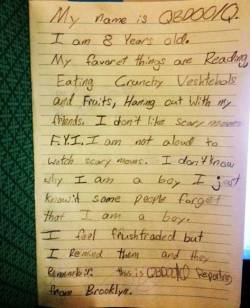 My name is QBDOO/Q.
I am 8 Years old.
My favoret things are Reading
Eating Crunchy Veshtebals
and Fruits, Haning out with my
friends. I don't like scary moves
F.Y.I. I am not aloud to
watch scary moves. I don't know
why I am a boy I just
know it some people forget
that I am a boy.
I feel frushtraded but
I Remind them and they
Remember. this is QBDOO/Q Reporting
from Brooklyn.